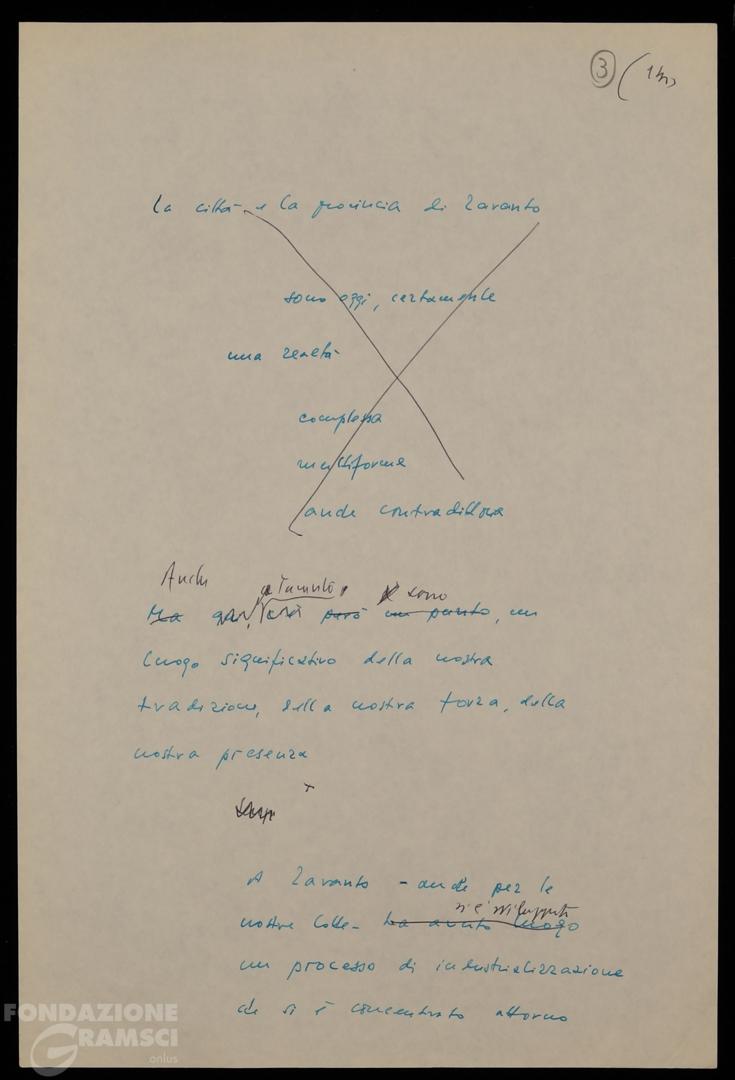 3
La città e la provincia di Taranto
sono oggi, certamente
una realtà
complessa
multiforme
anche contraddittoria
Anche Taranto, sono
Ma però un punto, un
luogo significativo della nostra
tradizione, della nostra forza, della
nostra presenza
A Taranto - anche per le
si è sviluppato
nostre lotte - ha avuto luogo
un processo di industrializzazione
che si è concentrato attorno
FONDAZIONE
GRAMSCI
onlus